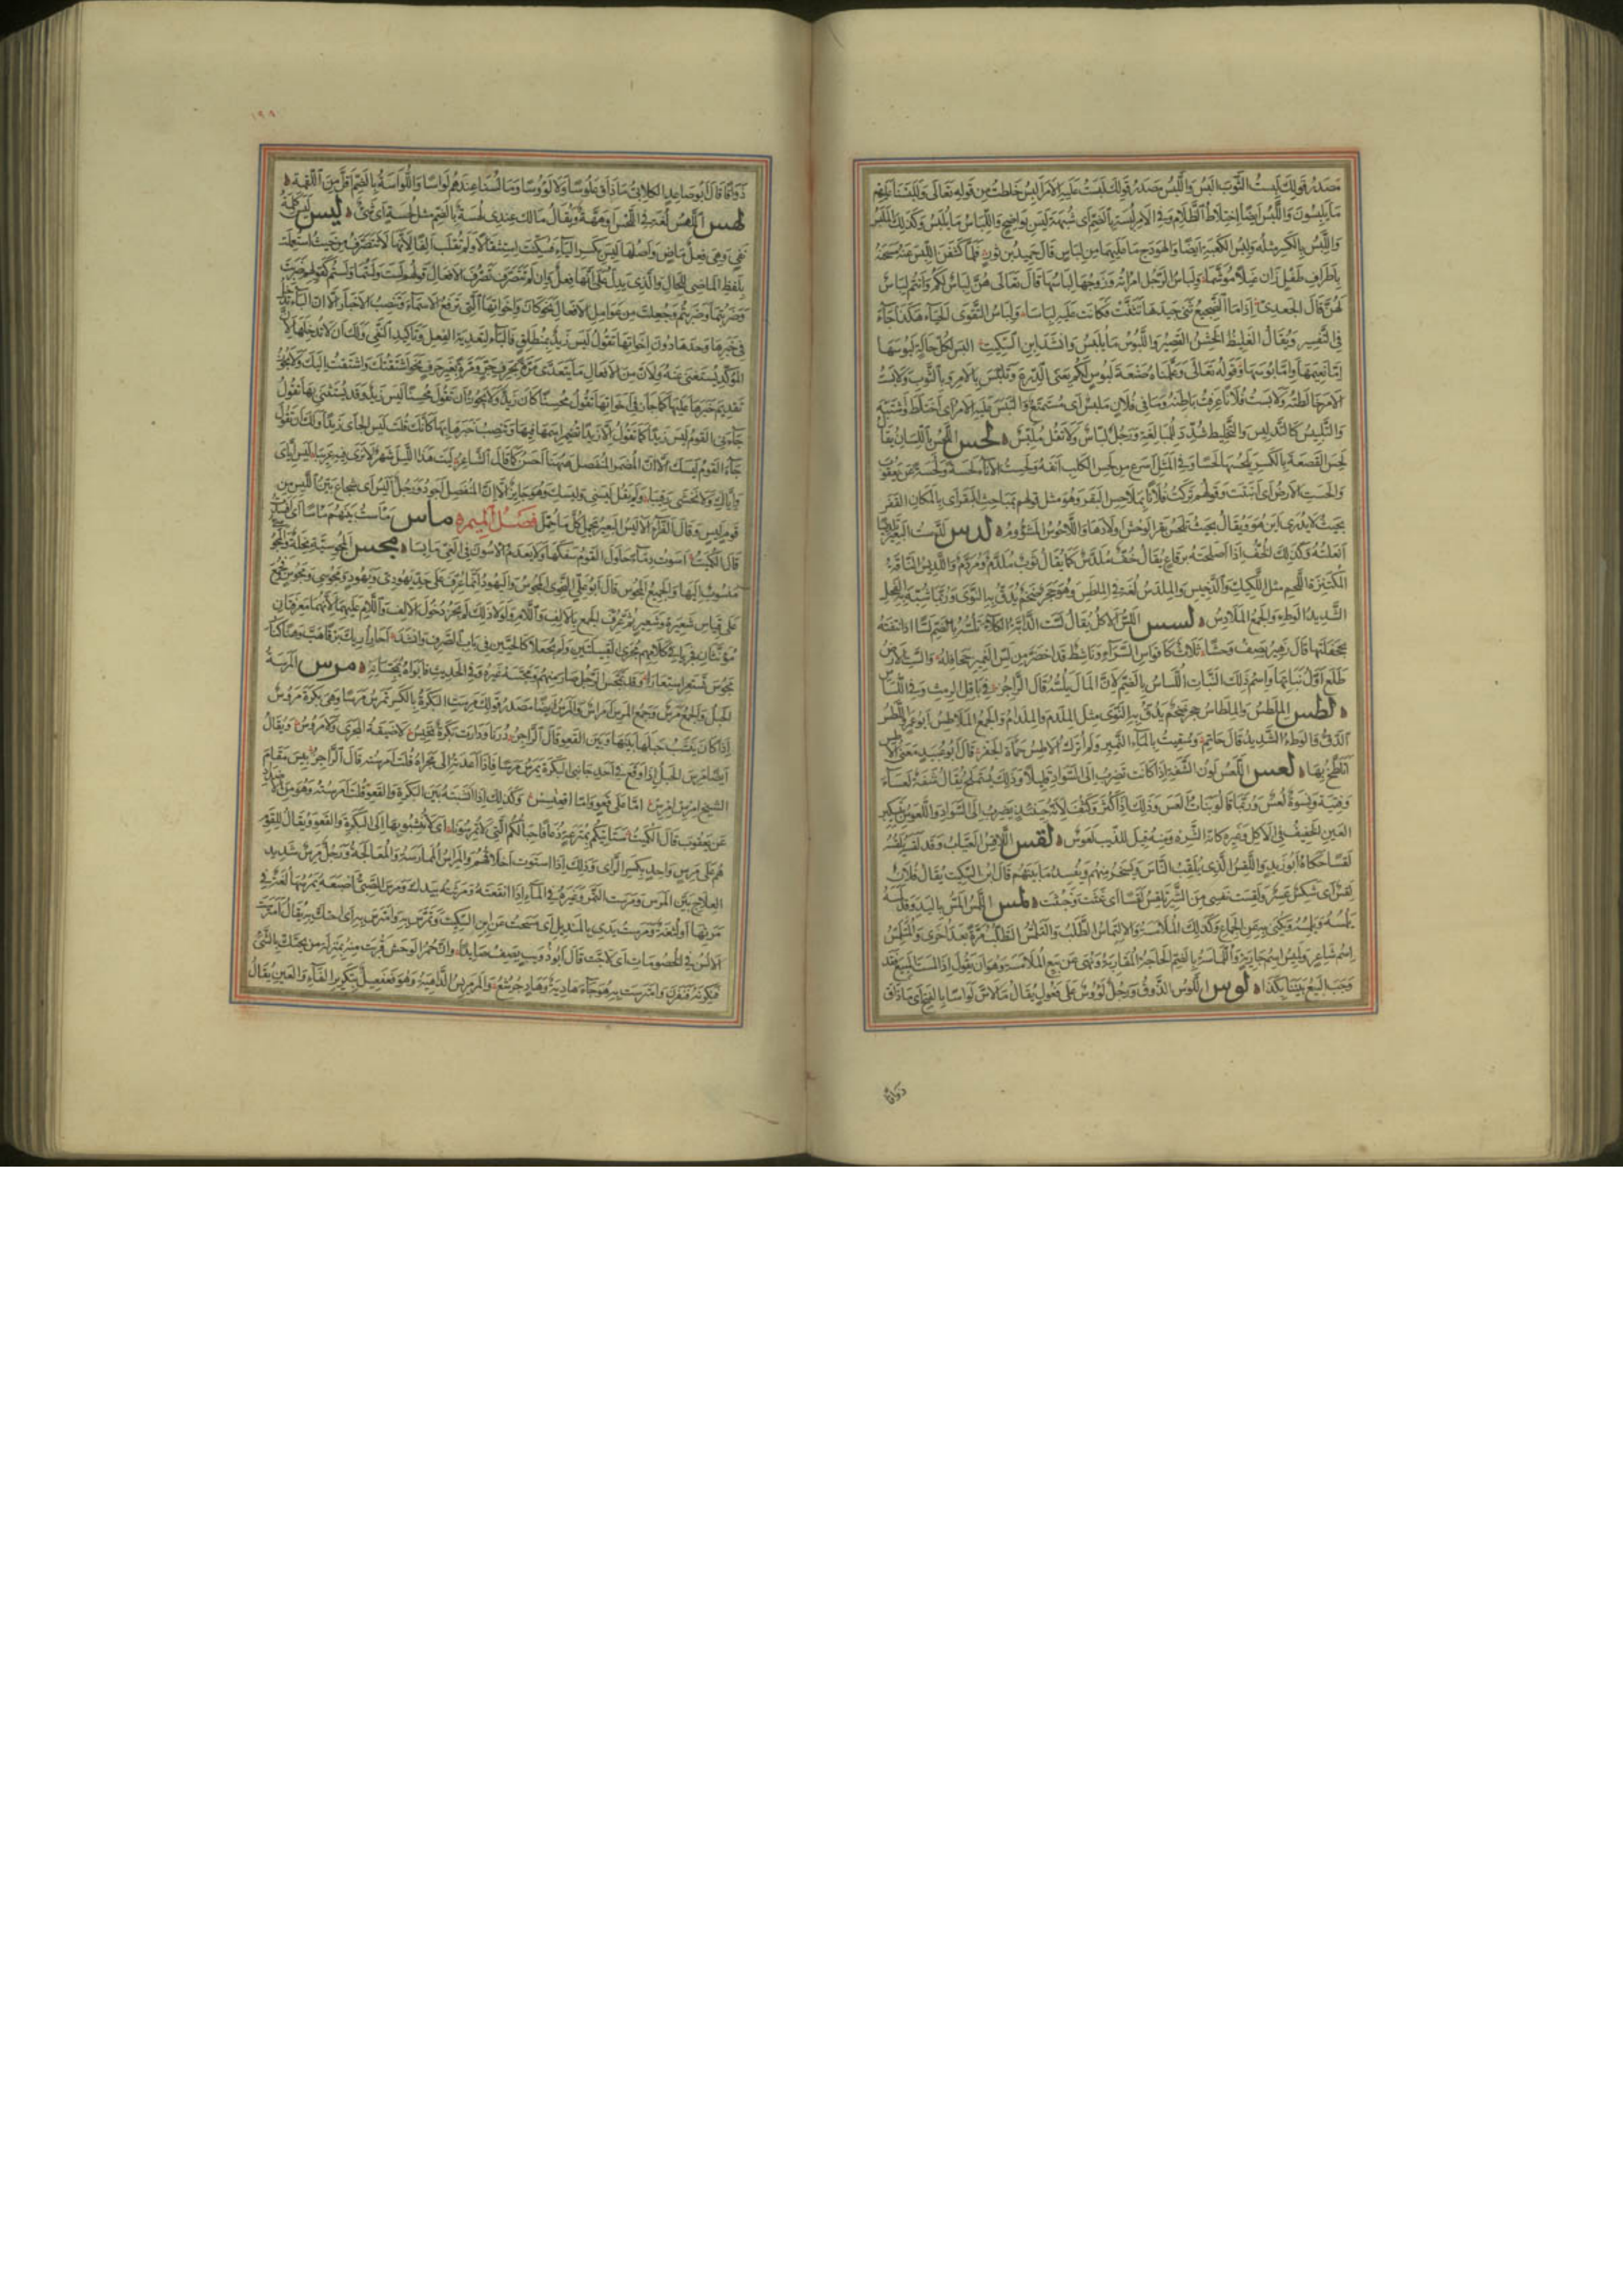 مصدر قولك لبست الثوب البس واللبس مصدر قولك لبست عليه الامر البس خلطت من قوله تعالى وللبسنا عليهم
ما يلبسون واللبس ايضا اختلاط الظلام وفي الامر لبسة بالضم اى شبهة ليس بواضح واللباس ما يلبس وكذلك الملبس
واللبس بالكسر مثله ولبس الكعبة ايضا والهودج ما عليهما من لباس قال حميد بن ثور فلما كشفن اللبس عنه مسحنه
باطراف طفل زان غيلا موشما ولباس الرجل امراته وزوجها لباسها قال تعالى هن لباس لكم وانتم لباس
لهن قال الجعدى اذا ما الضجيع ثنى جيدها تثنت فكانت عليه لباسا ولباس التقوى الحياء هكذا جاء
في التفسير ويقال الغليظ الخشن القصير واللبوس ما يلبس وانشد ابن السكيت البس لكل حالة لبوسها
اما نعيمها واما بوسها وقوله تعالى وعلمناه صنعة لبوس لكم يعنى الدرع وتلبس بالامر وبالثوب ولابست
الامر خالطته ولابست فلانا عرفت باطنه وما في فلان ملبس اى مستمتع والتبس عليه الامر اى اختلط واشتبه
والتلبيس كالتدليس والتخليط شدد للمبالغة ورجل لباس ولا تقل ملبس لحس اللحس باللسان يقال
لحس القصعة بالكسر يلحسها لحسا وفي المثل اسرع من لحس الكلب انفه ولحست الاناء لحسة ولحسة عن يعقوب
والحست الارض اى انبتت وقولهم تركت فلانا بملاحس البقر وهو مثل قولهم بمباحث البقر اى بالمكان القفر
بحيث لا يدرى اين هو ويقال بحيث تلحس بقر الوحش اولادها واللاحوس المشؤوم لدس لدست البعير تلديسا
انعلته وكذلك الخف اذا اصلحته برقاع يقال خف ملدس كما يقال ثوب ملدم ومردم واللديس الناقة
المكتنزة اللحم مثل اللكيك والدخيس والملدس لغة في الملطس وهو حجر ضخم يدق به النوى وربما شبه به الفحل
الشديد الوطء والجمع الملادس لسس اللس الاكل يقال لست الدابة الكلأ تلسه بالضم لسا اذا نتفته
بجحفلتها قال زهير يصف وحشا ثلاث كاقواس السراء وناشط قد اخضر من لس الغمير جحافله والست الارض
طلع اول نباتها واسم ذلك النبات اللساس بالضم لان المال يلسه قال الراجز في باقل الرمث وفي اللساس
لطس الملطس والملطاس حجر ضخم يدق به النوى مثل الملدم والملدام والجمع الملاطس ابو عمرو اللطس
الدق والوطء الشديد قال حاتم وسقيت بالماء النمير ولم اترك الاطس حمأة الحفر قال ابو عبيد معنى الاطس
اتلطخ بها لعس اللعس لون الشفة اذا كانت تضرب الى السواد قليلا وذلك يستملح يقال شفة لعساء
وفتية ونسوة لعس وربما قالوا نبات العس وذلك اذا كثر وكثف لانه حينئذ يضرب الى السواد واللعوس بتسكين
العين الخفيف في الاكل وغيره كانه الشره ومنه قيل للذيب لعوس لقس اللاقس العياب وقد لقسه يلقسه
لقسا حكاه ابو زيد واللقس الذي يلقب الناس ويسخر منهم ويفسد ما بينهم قال ابن السكيت يقال فلان
لقس اى شكس عسر ولقست نفسي من الشئ تلقس لقسا اى غثت وخبثت لمس اللمس المس باليد وقد لمسه
يلمسه ويلمسه ويكنى به عن الجماع وكذلك الملامسة والالتماس الطلب والتلمس التطلب مرة بعد اخرى والمتلمس
اسم شاعر ولميس اسم جارية واللماسة بالضم الحاجة المقاربة ونهى عن بيع الملامسة وهو ان يقول اذا لمست المبيع فقد
وجب البيع بيننا بكذا لوس اللوس الذوق ورجل لؤوس على فعول يقال ما لاس لواسا بالفتح اى ما ذاق
ذواقا
١٩٩
ذواقا قال ابو صاعد الكلابي ما ذاق علوسا ولا لؤوسا وما لسنا عندهم لواسا واللواسة بالضم اقل من اللقمة
لهس اللهس لغة في اللحس او ههة ويقال مالك عندى لهسة بالضم مثل لحسة اى شئ ليس ليس كلمة
نفي وهي فعل ماض واصلها ليس بكسر الياء فسكنت استثقالا ولم تقلب الفا لانها لا تتصرف من حيث استعملت
بلفظ الماضي للحال والذى يدل على انها فعل وان لم تتصرف تصرف الافعال قولهم لست ولستما ولستم كقولهم ضربت
وضربتما وضربتم وجعلت من عوامل الافعال نحو كان واخواتها التى ترفع الاسماء وتنصب الاخبار الا ان الباء تدخل
في خبرها وحدها دون اخواتها تقول ليس زيد بمنطلق فالباء لتعدية الفعل وتأكيد النفي ولك ان لا تدخلها لان
المؤكد يستغنى عنه ولان من الافعال ما يتعدى مرة بحرف جر ومرة بغير حرف نحو اشتقتك واشتقت اليك ولا يجوز
تقديم خبرها عليها كما جاز في اخواتها تقول محسنا كان زيد ولا يجوز ان تقول محسنا ليس زيد وقد يستثنى بها تقول
جاءنى القوم ليس زيدا كما تقول الا زيدا تضمر اسمها فيها وتنصب خبرها بها كانك قلت ليس الجائي زيدا ولك ان تقول
جاء القوم ليسك الا ان المضمر المنفصل ههنا احسن كما قال الشاعر ليت هذا الليل شهر لا نرى فيه عريبا ليس اياى
واياك ولا نخشى رقيبا ولم يقل ليسنى وليسك وهو جايز الا ان المنفصل اجود ورجل اليس اى شجاع بين الليس من
قوم ليس وقال الفراء الاليس البعير يحمل كل ما حمل فصل الميم ماس ماست بينهم ماسا اى افسدت
قال الكميت اسوت دماء حاول القوم سفكها ولا يعدم الاسون في الغى مايسا مجس المجوسية نحلة والمجوسى
منسوب اليها والجميع المجوس قال ابو على النحوى المجوس واليهود انما عرف على حد يهودى ويهود ومجوسى ومجوس فجمع
على قياس شعيرة وشعير ثم عرف الجمع بالالف واللام ولولا ذلك لم يجز دخول الالف واللام عليهما لانهما معرفتان
مؤنثان فجريا في كلامهم مجرى القبيلتين ولم يجعلا كالحيين في باب الصرف وانشد احار اريك برقا هب وهنا كنار
مجوس تستعر استعارا وقد تمجس الرجل صار منهم ومجسه غيره وفي الحديث فابواه يمجسانه مرس المرسة
الحبل والجمع مرس وجمع المرس امراس والمرس ايضا مصدر قولك مرست البكرة بالكسر تمرس مرسا وهي بكرة مروس
اذا كان ينشب حبلها بينها وبين القعو قال الراجز درنا ودارت بكرة نخيس لا ضيقة المجرى ولا مروس ويقال
ايضا مرس الحبل اذا وقع في احد جانبي البكرة يمرس مرسا فاذا اعدته الى مجراه قلت امرسته قال الراجز بئس مقام
الشيخ امرس امرس اما على قعو واما اقعنسس وكذلك اذا انشبته بين البكرة والقعو قلت امرسته وهو من الاضداد
عن يعقوب قال الكميت ستأتيكم بمترعة ذعافا حبالكم التي لا تمرسونا اى لا تنشبونها الى البكرة والقعو ويقال للقوم
هم على مرس واحد بكسر الراء وذلك اذا استوت اخلاقهم والمراس الممارسة والمعالجة ورجل مرس شديد
العلاج بين المرس ومرست التمر وغيره في الماء اذا انقعته ومرثته بيدك ومرس الصبى اصبعه يمرسها لغة في
مرثها او لثغة ومرست يدى بالمنديل اى مسحت عن ابن السكيت وتمرس به وامترس به اى احتك به يقال امترست
الالسن في الخصومات اى لاجت قال ابو ذويب يصف صايدا وان حمر الوحش قربت منه بمنزلة من يحتك بالشئ
فنكرنه فنفرن وامترست به هوجاء هادية وهاد جرشع والمرمريس الداهية وهو فعفعيل بتكرير الفاء والعين يقال